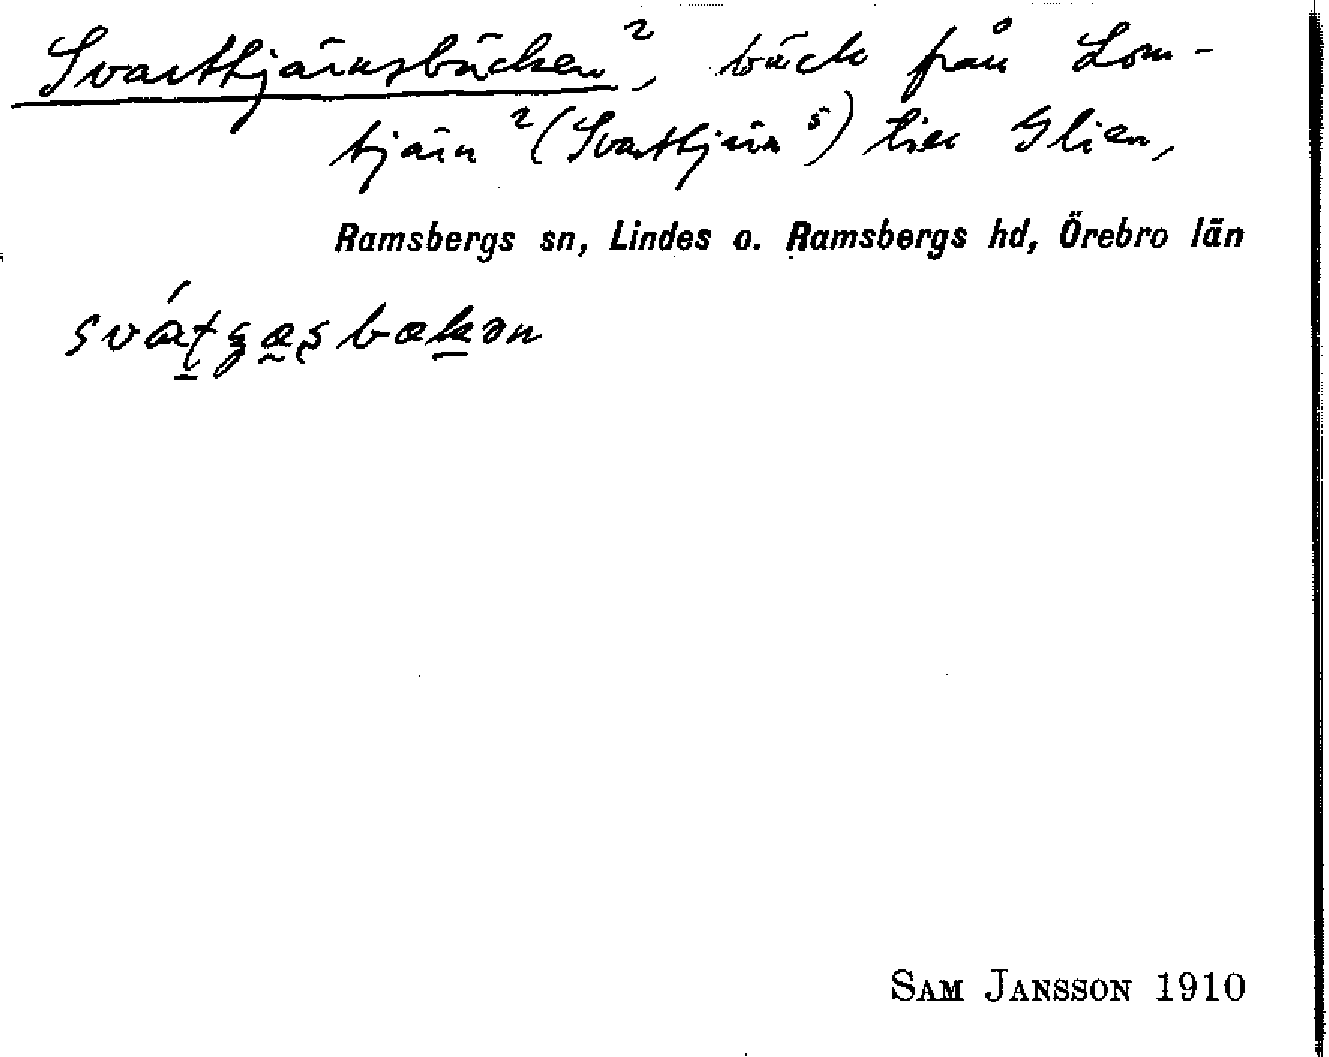 Svarttjärnsbäcken², bäck från Lom-
tjärn² (Svarttjärn⁵) till Glien,
Ramsbergs sn, Lindes o. Ramsbergs hd, Örebro län
SAM JANSSON 1910